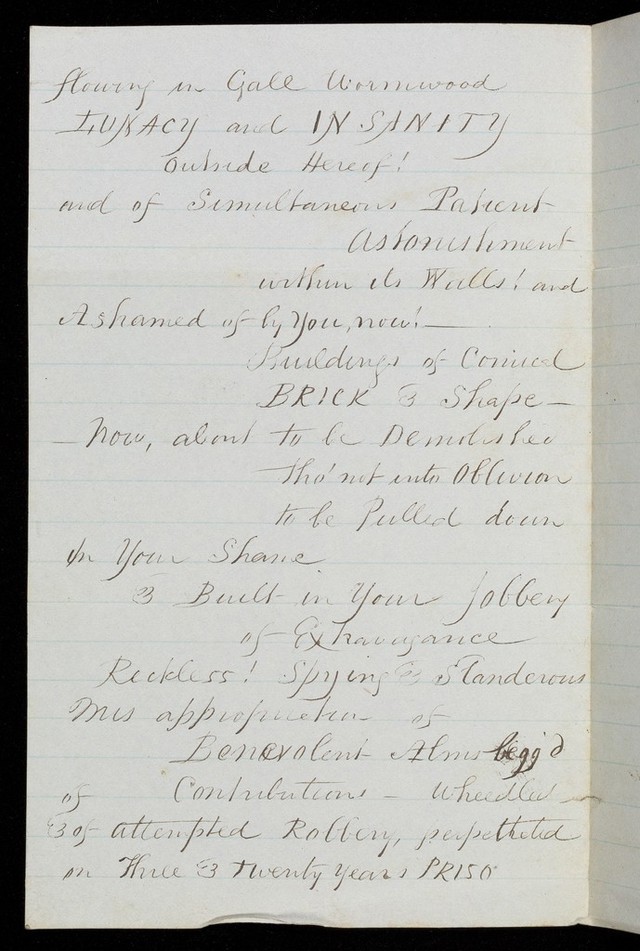 flowing in Gall Wormwood
LUNACY and INSANITY
outside Hereof!
and of Simultaneous Patient
Astonishment
within its Walls! and
Ashamed of by You, now! —
Buildings of Comical
BRICK & Shape —
— Now, about to be Demolished
tho' not into Oblivion
to be Pulled down
in Your Shame
& Built in Your Jobbery
of Extravagance
Reckless! Spying & Slanderous
Mis appropriation of
Benevolent Alms begg'd
of Contributions — Wheedled —
& of attempted Robbery, perpetrated
in Three & Twenty years PRISO